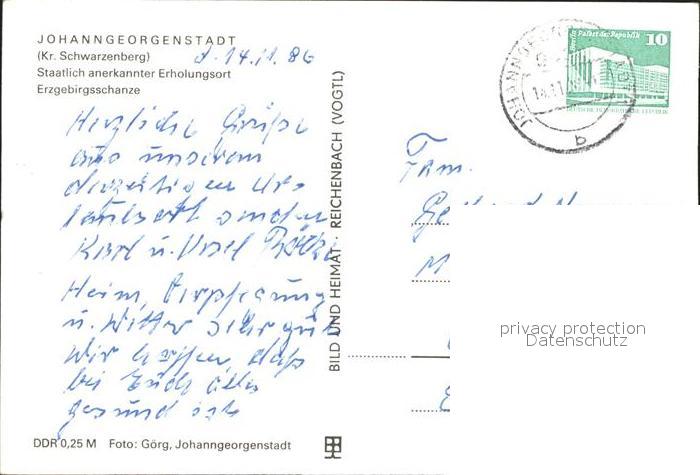 JOHANNGEORGENSTADT
(Kr. Schwarzenberg)
Staatlich anerkannter Erholungsort
Erzgebirgsschanze
d. 14.11.86
Herzliche Grüße
aus unserem
derzeitigen Ur-
laubsort senden
Karl u. Ursel
Heim, Verpflegung
u. Wetter sehr gut
Wir hoffen, daß
bei Euch alles
gesund ist
DDR 0,25 M Foto: Görg, Johanngeorgenstadt
BILD UND HEIMAT REICHENBACH (VOGTL)
Berlin Palast der Republik
10
DEUTSCHE DEMOKRATISCHE REPUBLIK
b
Fam.
privacy protection
Datenschutz